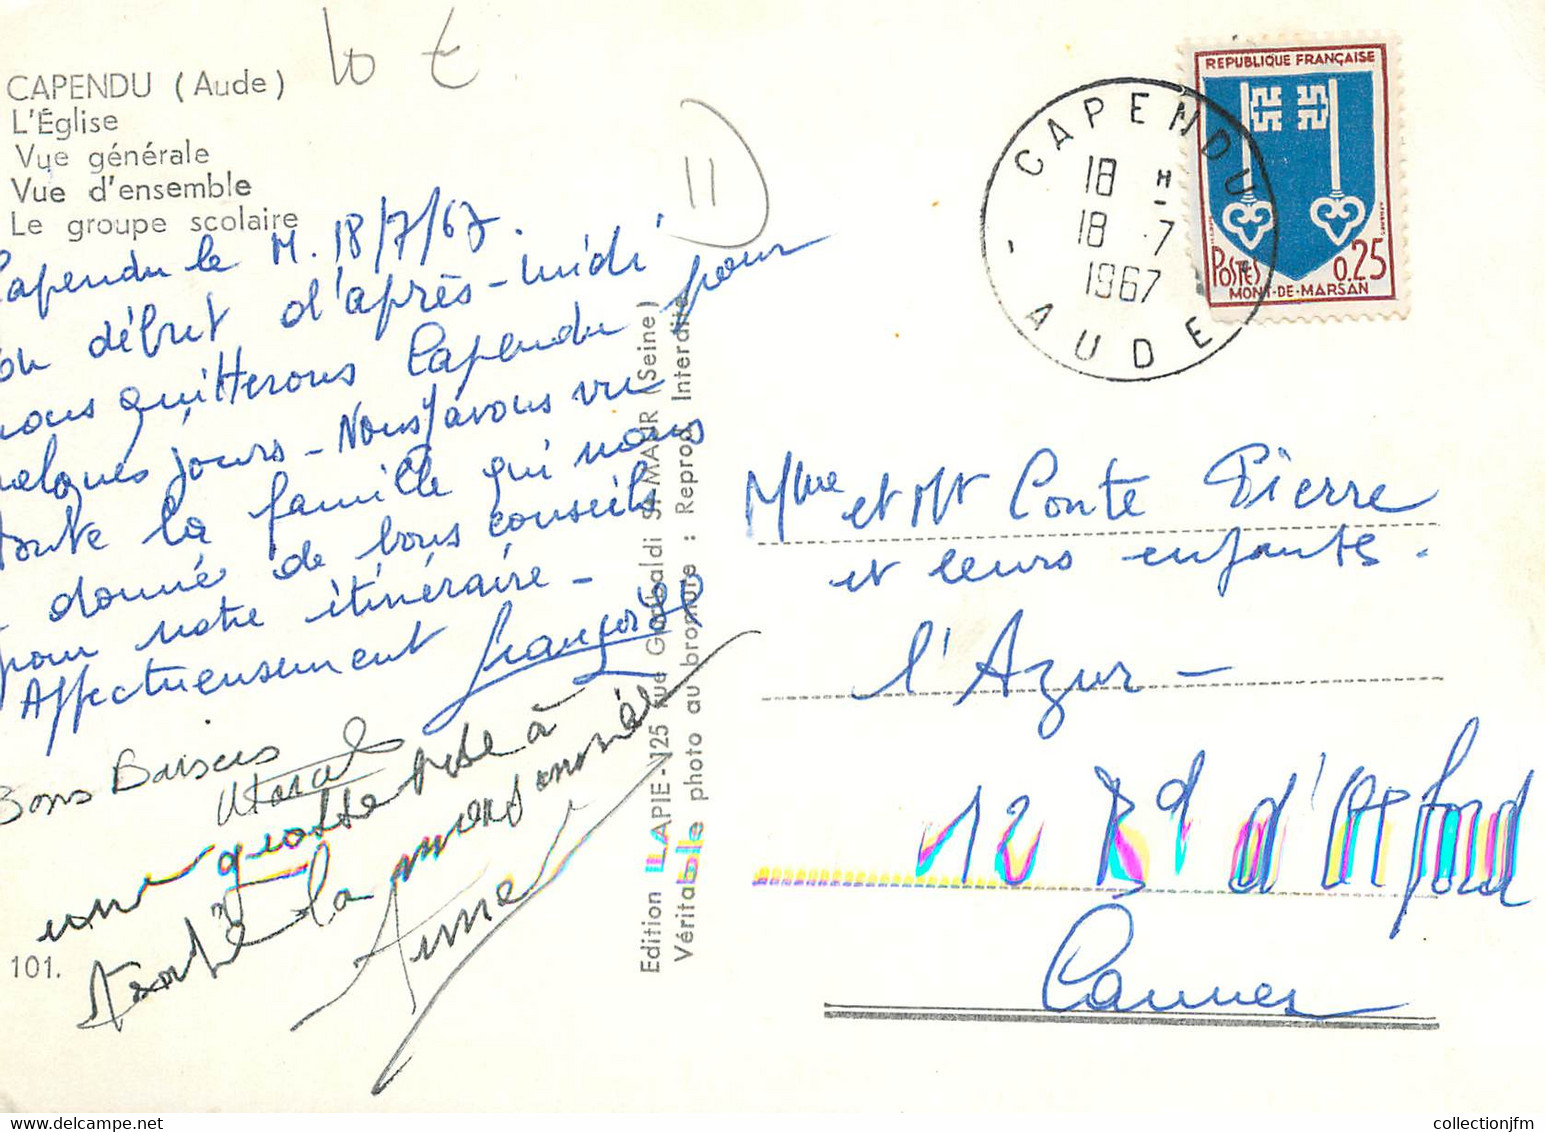 10 €
CAPENDU (Aude)
L'Église
Vue générale
Vue d'ensemble
Le groupe scolaire
11
Capendu le M. 18/7/67.
En début d'après-midi
nous quitterons Capendu pour
quelques jours - Nous avons vu
toute la famille qui nous
a donné de bons conseils
pour notre itinéraire -
Affectueusement Françoise
Bons Baisers Marcel
une grosse bise à
toute la maisonnée
Aimé
101.
Edition LAPIE - 125 rue Garibaldi St MAUR (Seine)
Véritable photo au bromure : Reprod. Interdite
CAPENDU
18 H
18 - 7
1967
AUDE
REPUBLIQUE FRANÇAISE
POSTES 0,25
MONT-DE-MARSAN
Mme et Mr Conte Pierre
et leurs enfants.
l'Azur -
12 Bd d'Oxford
Cannes
collectionjfm